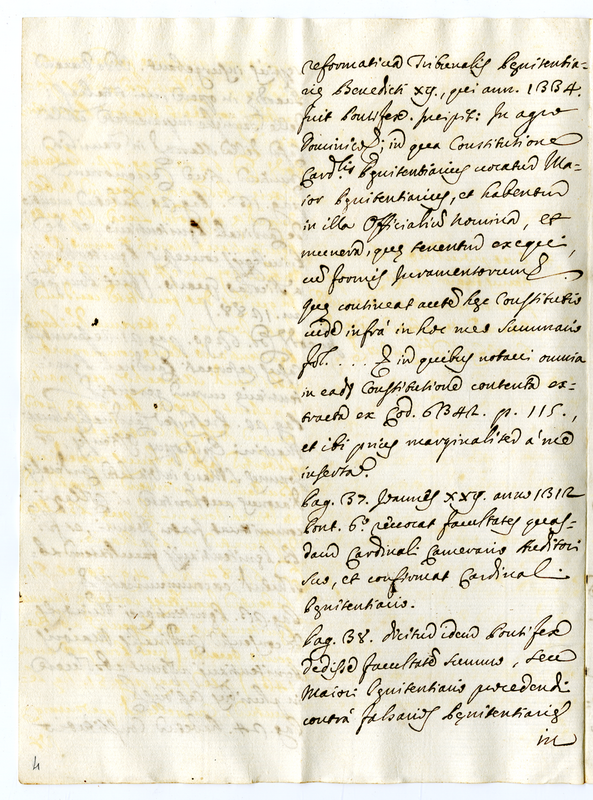 reformatiua Tribunalis Pęnitentia-
rię Benedicti XIJ., qui ann. 1334.
fuit Pontifex. incipit: In agro
Dominico; in qua Constitutione
Card.lis Pęnitentiarius uocatur Ma-
ior Pęnitentiarius, et habentur
in illa Officialium nomina, et
munera, quę tenentur exequi,
cum formis Juramentorum.
Quę contineat autem hęc Constitutio
uide infrà in hoc meo Summario
fol. . . . in quibus notaui omnia
in eadem Constitutione contenta ex-
tracta ex Cod. 6342. p. 115.,
et ibi prius marginaliter à me
inserta.
Pag. 37. Joannes XXIJ. anno 1312
Pont. 6.o reuocat facultates quas-
dam Cardinali Camerario
suo, et confirmat Cardinali
Pęnitentiario.
Pag. 38. dicitur idem Pontifex
dedisse facultatem summo, seu
Maiori Pęnitentiario procedendi
contrà falsarios Pęnitentiarię
in
4